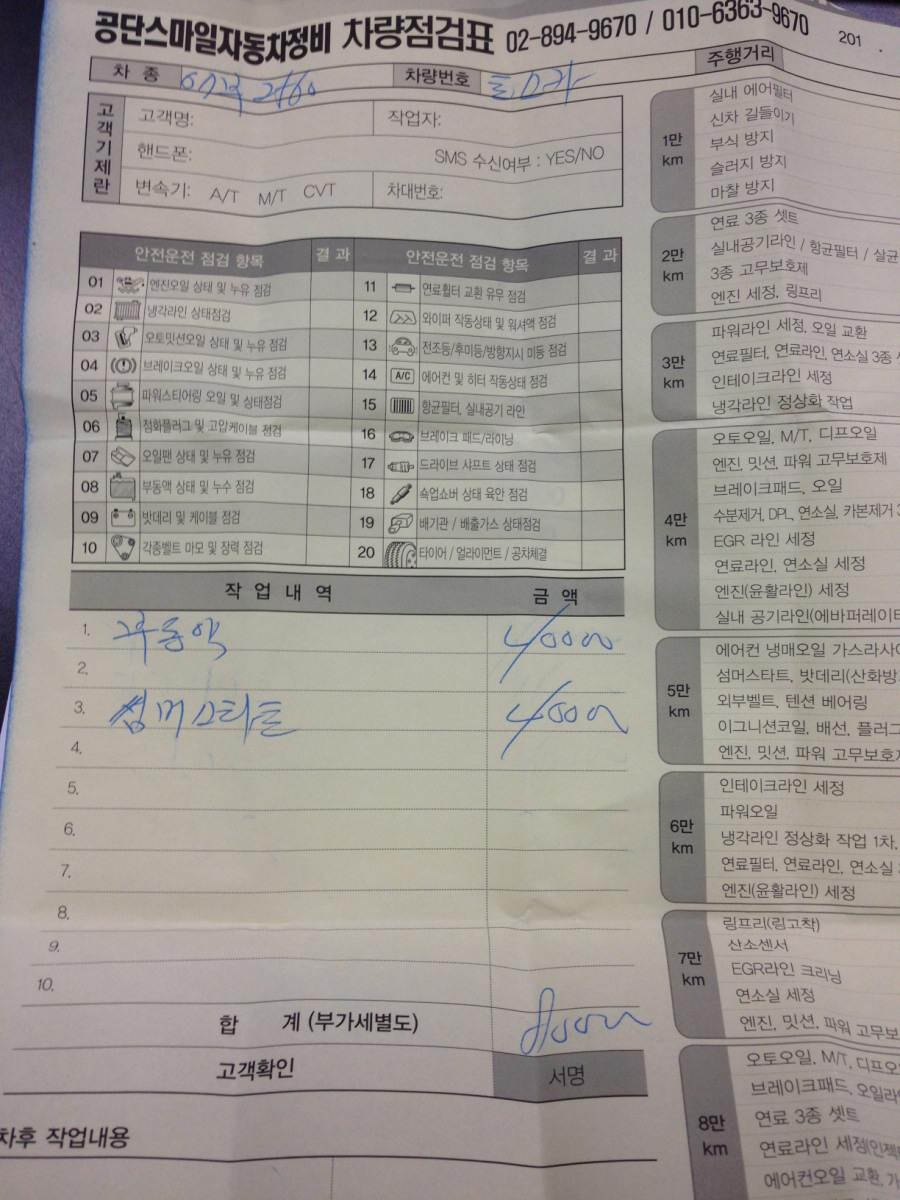 공단스마일자동차정비 차량점검표 02-894-9670 / 010-6363-9670 201 .
차 종
차량번호
고객기제란
고객명: 작업자:
핸드폰: SMS 수신여부 : YES/NO
변속기: A/T M/T CVT 차대번호:
안전운전 점검 항목 결 과 안전운전 점검 항목 결 과
01 엔진오일 상태 및 누유 점검
02 냉각라인 상태점검
03 오토밋션오일 상태 및 누유 점검
04 브레이크오일 상태 및 누유 점검
05 파워스티어링 오일 및 상태점검
06 점화플러그 및 고압케이블 점검
07 오일팬 상태 및 누유 점검
08 부동액 상태 및 누수 점검
09 밧데리 및 케이블 점검
10 각종벨트 마모 및 장력 점검
11 연료휠터 교환 유무 점검
12 와이퍼 작동상태 및 워셔액 점검
13 전조등/후미등/방향지시 미등 점검
14 A/C 에어컨 및 히터 작동상태 점검
15 항균필터, 실내공기 라인
16 브레이크 패드/라이닝
17 드라이브 샤프트 상태 점검
18 쇽업쇼버 상태 육안 점검
19 배기관 / 배출가스 상태점검
20 타이어 / 얼라이먼트 / 공차체결
작 업 내 역 금 액
1. 부동액 40000
2.
3. 썸머스타트 40000
4.
5.
6.
7.
8.
9.
10.
합 계 (부가세별도) 80000
고객확인 서명
차후 작업내용
주행거리
1만 km
실내 에어필터
신차 길들이기
부식 방지
슬러지 방지
마찰 방지
2만 km
연료 3종 셋트
실내공기라인 / 항균필터 / 살균
3종 고무보호제
엔진 세정, 링프리
3만 km
파워라인 세정, 오일 교환
연료필터, 연료라인, 연소실 3종
인테이크라인 세정
냉각라인 정상화 작업
4만 km
오토오일, M/T, 디프오일
엔진, 밋션, 파워 고무보호제
브레이크패드, 오일
수분제거, DPL, 연소실, 카본제거
EGR 라인 세정
연료라인, 연소실 세정
엔진(윤활라인) 세정
실내 공기라인(에바퍼레이터
5만 km
에어컨 냉매오일 가스라사이
섬머스타트, 밧데리(산화방
외부벨트, 텐션 베어링
이그니션코일, 배선, 플러그
엔진, 밋션, 파워 고무보호제
6만 km
인테이크라인 세정
파워오일
냉각라인 정상화 작업 1차,
연료필터, 연료라인, 연소실
엔진(윤활라인) 세정
7만 km
링프리(링고착)
산소센서
EGR라인 크리닝
연소실 세정
엔진, 밋션, 파워 고무보
8만 km
오토오일, M/T, 디프오
브레이크패드, 오일라
연료 3종 셋트
연료라인 세정(인젝
에어컨오일 교환, 가